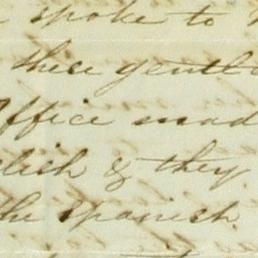 spoke to
these gentle
Office mad
glish & they
the Spanish